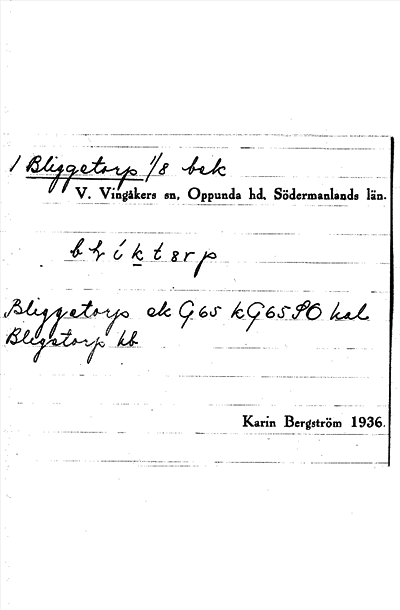 1 Bliggetorp 1/8 bek
V. Vingåkers sn, Oppunda hd, Södermanlands län.
Bliggetorp ek G65 kG65 PO kal
Bligstorp kb
Karin Bergström 1936.